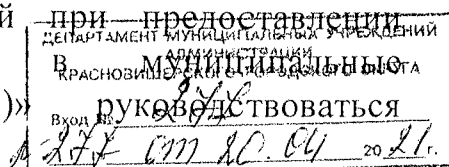 й при предоставлении
ДЕПАРТАМЕНТ МУНИЦИПАЛЬНЫХ УЧРЕЖДЕНИЙ
АДМИНИСТРАЦИИ
в муниципальные
КРАСНОВИШЕРСКОГО ГОРОДСКОГО ОКРУГА
)» руководствоваться
Вход №
277 от 20.04 2021 г.